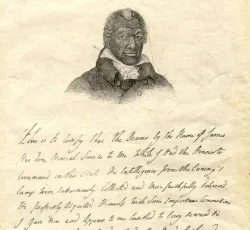 This is to Certify that the Bearer by the Name of James
Has done Essential Service to Me While I Had the Honour to
Command in this State. His Intelligence from the Enemy's
Camp were Industriously Collected and More faithfully deliver'd
He perfectly Acquitted Himself with Some Important Commissions
I Gave him and Appears to me Entitled to Every Reward his